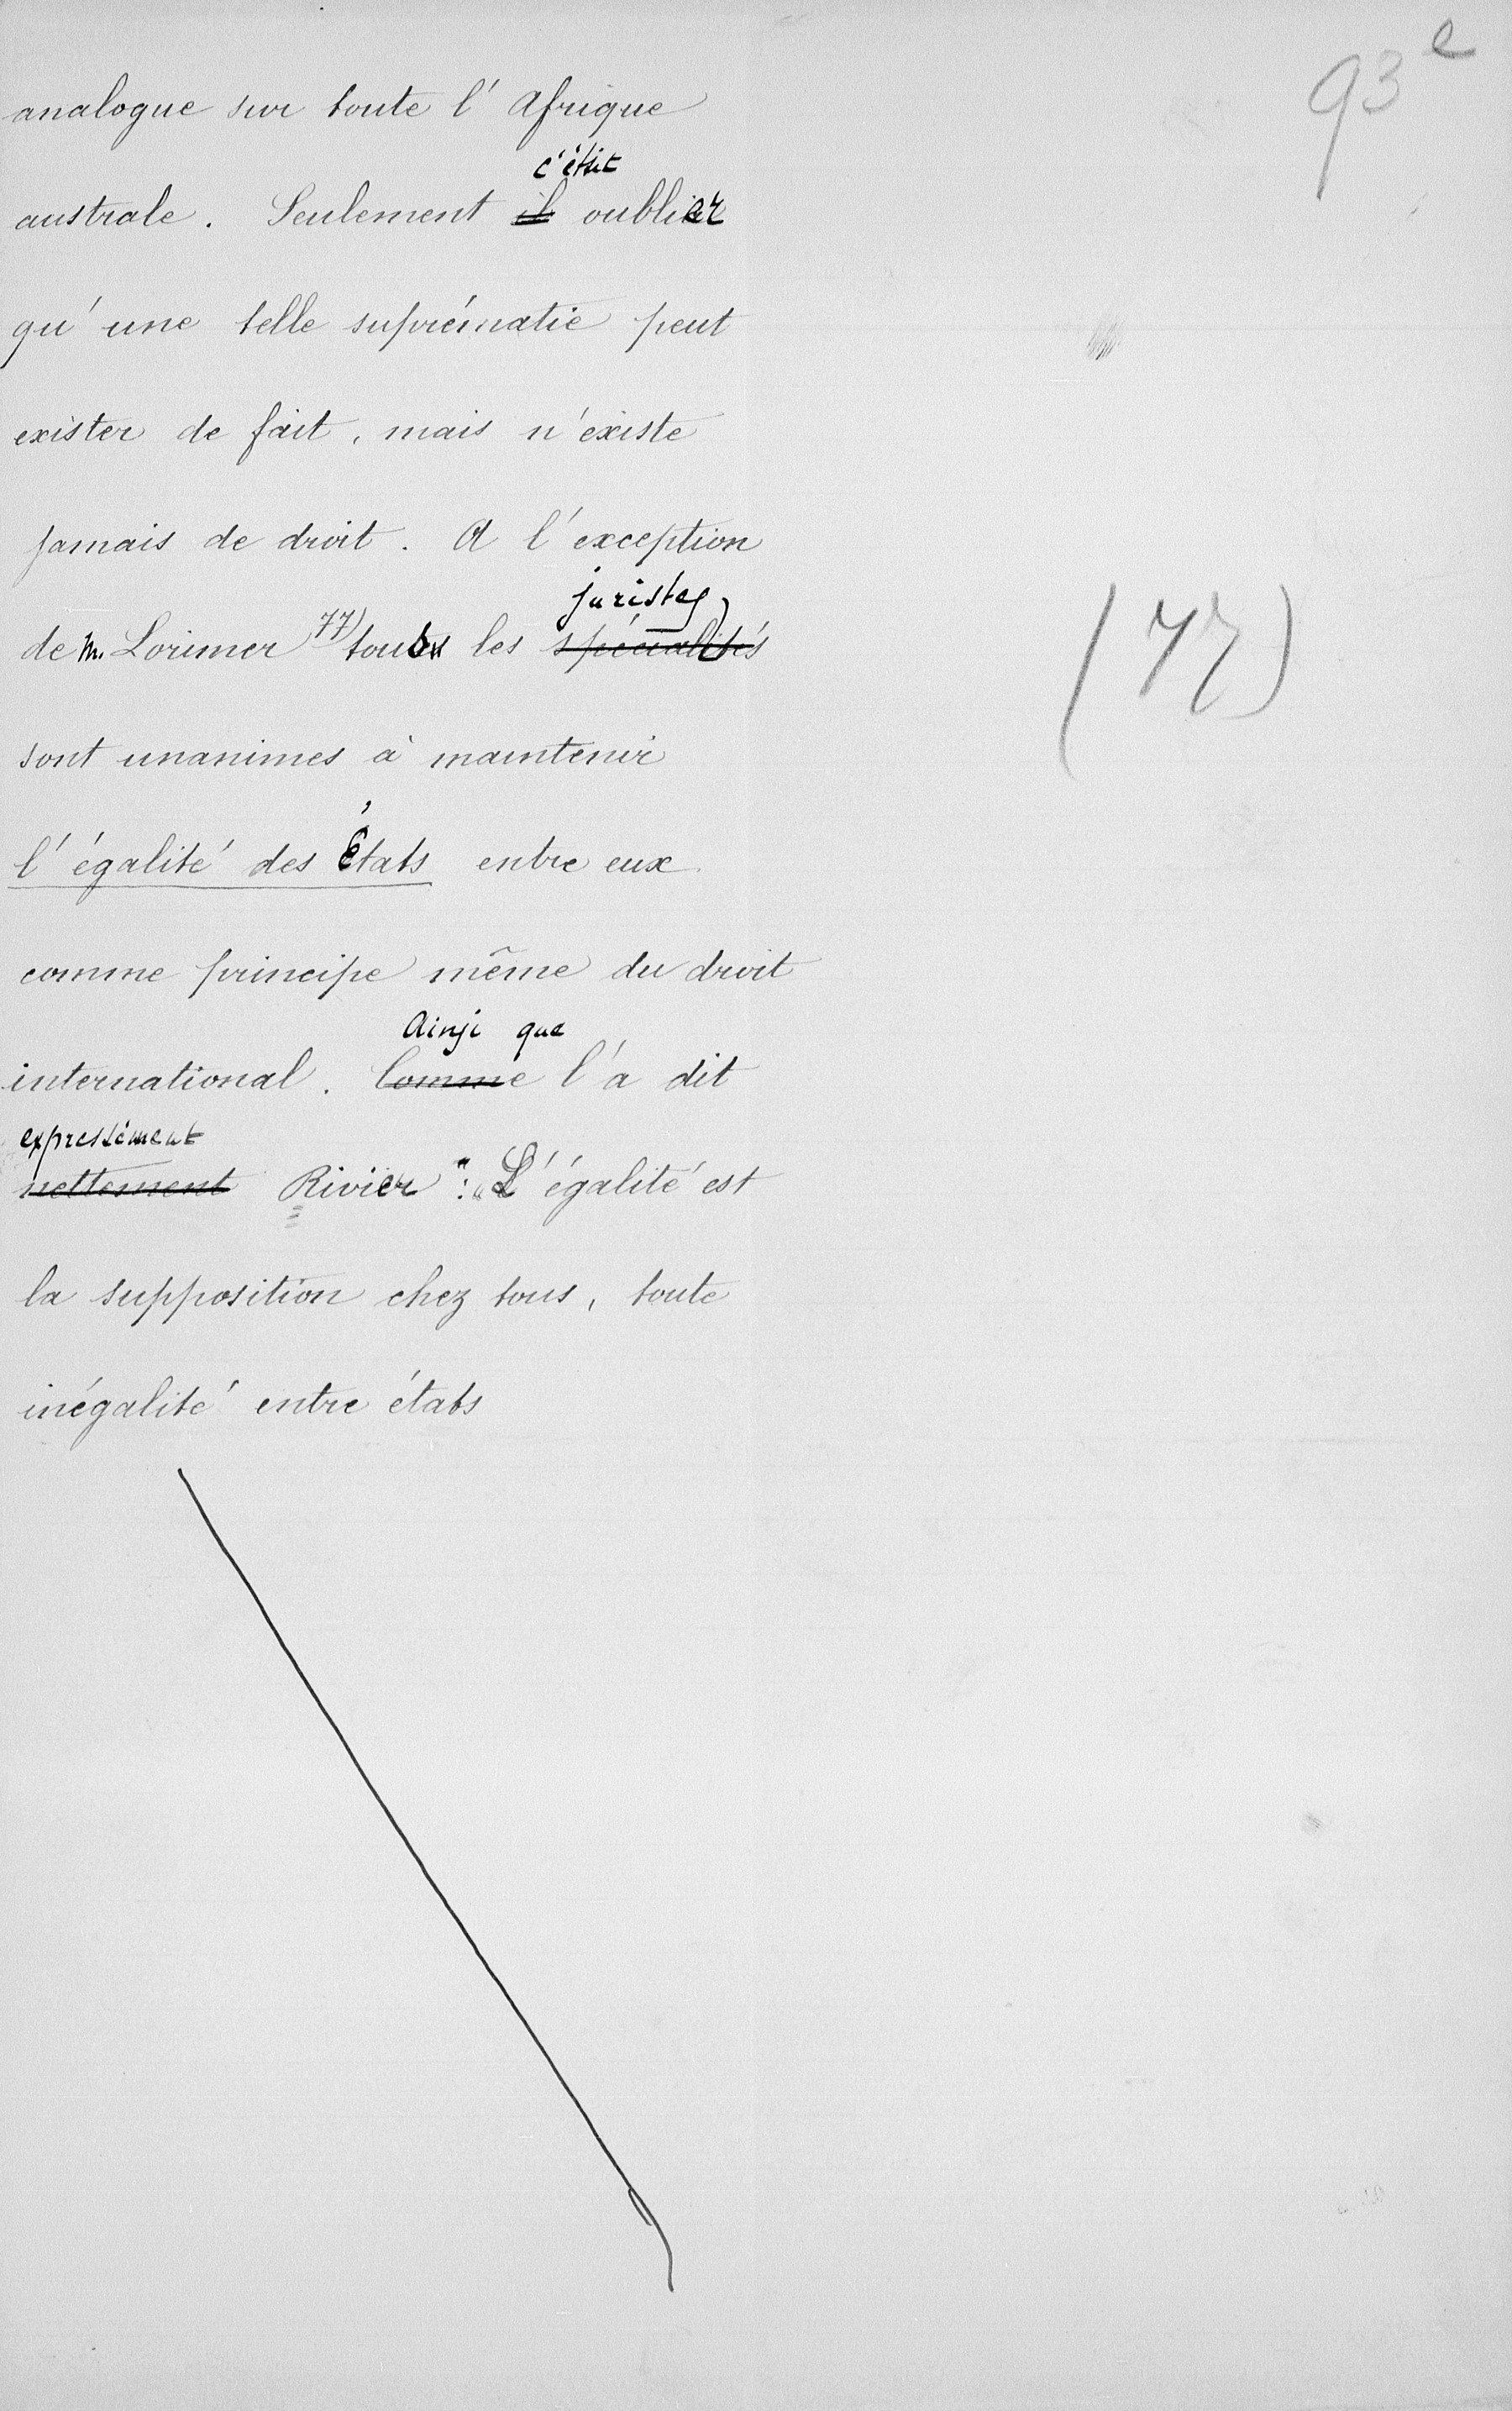 93 e
analogue sur toute l'Afrique
c'était
australe. Seulement il oublier
qu'une telle suprématie peut
exister de fait, mais n'existe
jamais de droit. A l'exception
juristes
de M. Lorimer 77) tous les spécialités
(77)
sont unanimes à maintenir
l'égalité des États entre eux
comme principe même du droit
Ainsi que
international. Comme l'a dit
expressément
nettement Rivier ": „L'égalité est
la supposition chez tous, toute
inégalité entre états